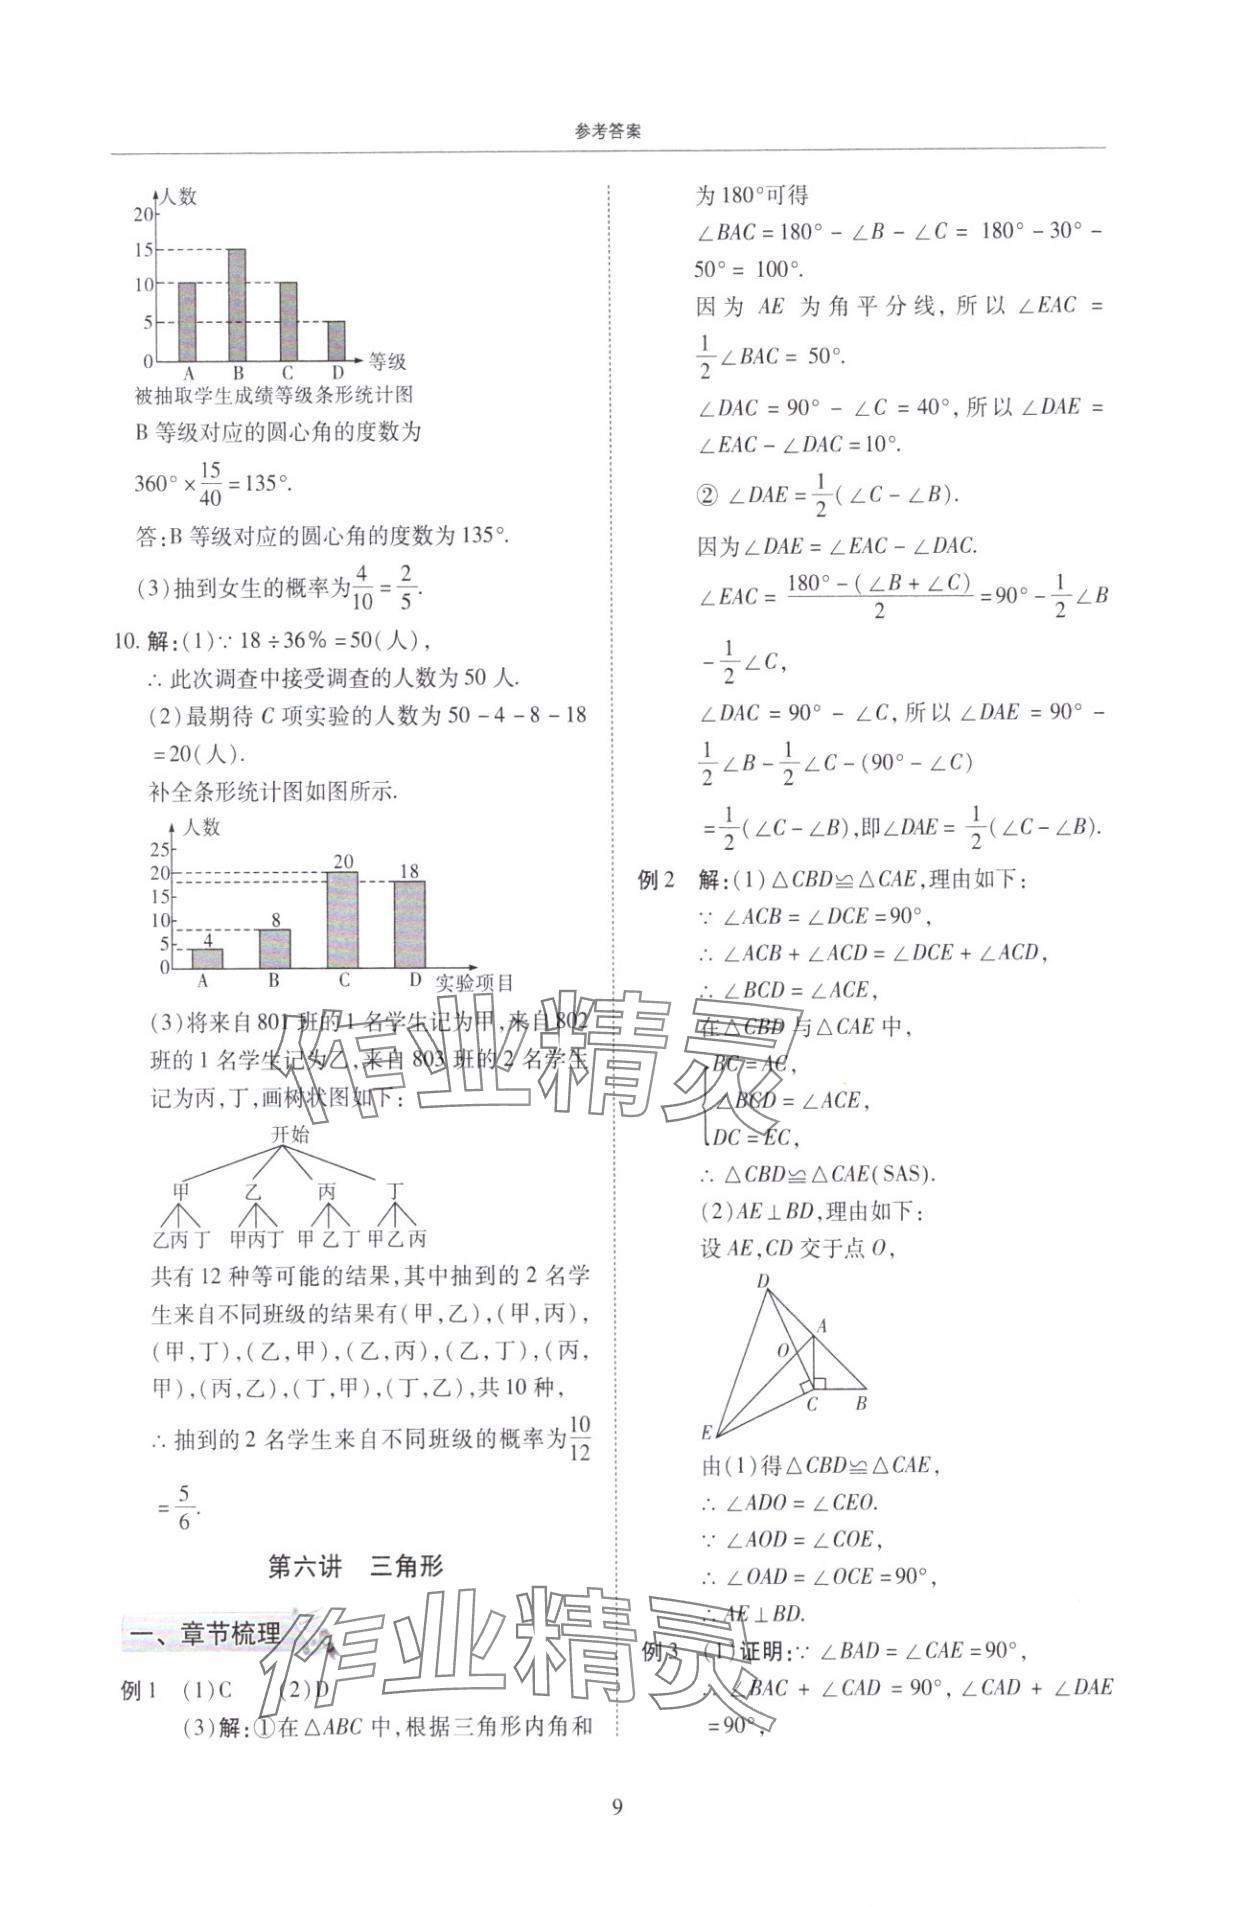 参考答案
人数
20
15
10
5
0
A B C D 等级
被抽取学生成绩等级条形统计图
B 等级对应的圆心角的度数为
360°×15/40=135°.
答:B 等级对应的圆心角的度数为 135°.
(3)抽到女生的概率为4/10=2/5.
10. 解:(1)∵18÷36%=50(人),
∴此次调查中接受调查的人数为 50 人.
(2)最期待 C 项实验的人数为 50-4-8-18
=20(人).
补全条形统计图如图所示.
人数
25
20
15
10
5
0
4 8 20 18
A B C D 实验项目
(3)将来自 801 班的 1 名学生记为甲,来自 802
班的 1 名学生记为乙,来自 803 班的 2 名学生
记为丙,丁,画树状图如下:
开始
甲 乙 丙 丁
乙丙丁 甲丙丁 甲乙丁 甲乙丙
共有 12 种等可能的结果,其中抽到的 2 名学
生来自不同班级的结果有(甲,乙),(甲,丙),
(甲,丁),(乙,甲),(乙,丙),(乙,丁),(丙,
甲),(丙,乙),(丁,甲),(丁,乙),共 10 种,
∴抽到的 2 名学生来自不同班级的概率为10/12
=5/6.
第六讲 三角形
一、章节梳理
例 1 (1)C (2)D
(3)解:①在△ABC 中,根据三角形内角和
为 180°可得
∠BAC=180°-∠B-∠C=180°-30°-
50°=100°.
因为 AE 为角平分线,所以∠EAC=
1/2∠BAC=50°.
∠DAC=90°-∠C=40°,所以∠DAE=
∠EAC-∠DAC=10°.
②∠DAE=1/2(∠C-∠B).
因为∠DAE=∠EAC-∠DAC.
∠EAC=180°-(∠B+∠C)/2=90°-1/2∠B
-1/2∠C,
∠DAC=90°-∠C,所以∠DAE=90°-
1/2∠B-1/2∠C-(90°-∠C)
=1/2(∠C-∠B),即∠DAE=1/2(∠C-∠B).
例 2 解:(1)△CBD≌△CAE,理由如下:
∵∠ACB=∠DCE=90°,
∴∠ACB+∠ACD=∠DCE+∠ACD,
∴∠BCD=∠ACE,
在△CBD 与△CAE 中,
BC=AC,
∠BCD=∠ACE,
DC=EC,
∴△CBD≌△CAE(SAS).
(2)AE⊥BD,理由如下:
设 AE,CD 交于点 O,
D
A
O
C B
E
由(1)得△CBD≌△CAE,
∴∠ADO=∠CEO.
∵∠AOD=∠COE,
∴∠OAD=∠OCE=90°,
∴AE⊥BD.
例 3 (1)证明:∵∠BAD=∠CAE=90°,
∴∠BAC+∠CAD=90°,∠CAD+∠DAE
=90°,
作业精灵
作业精灵
9